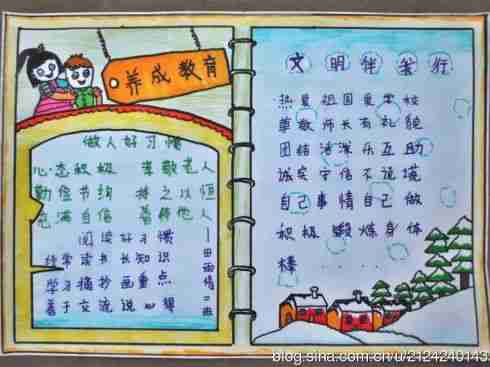 养成教育
做人好习惯
心态积极 孝敬老人
勤俭节约 持之以恒
充满自信 善待他人
阅读好习惯
经常读书长知识
学习摘抄画重点
善于交流说心得
文明伴我行
热爱祖国爱学校
尊敬师长有礼貌
团结活泼乐互助
诚实守信不说谎
自己事情自己做
积极锻炼身体
棒 . . . .
blog.sina.com.cn/u/2124240143